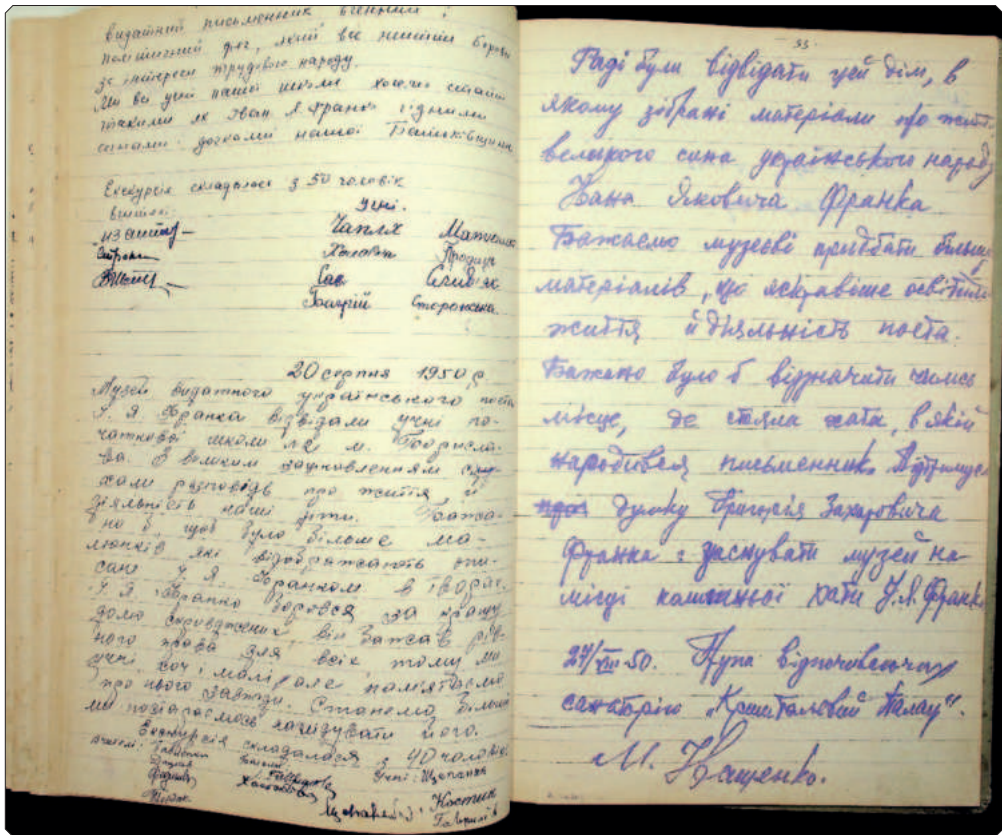 видатний письменник вчений і
політичний діяч, який все життя боровся
за інтереси трудового народу.
Ми всі учні нашої школи хочемо стати
такими як Іван Я. Франко гідними
синами і дочками нашої Батьківщини
Екскурсія складалась з 50 чоловік
учні.
20 серпня 1950 р
Музей видатного українського поета
І. Я. Франка відвідали учні по-
чаткової школи № м. Борисла-
ва. З великим захопленням слу-
хали розповідь про життя й
діяльність наші діти. Бажа-
но б щоб було більше ма-
люнків які відображають опи-
сане І. Я. Франком в творах.
І. Я. Франко боровся за кращу
долю скривджених, він бажав рів-
ного права для всіх тому ми
учні хоч і малі але пам'ятаємо
про нього завжди. Станемо більші
ми постараємось наслідувати його.
Екскурсія складалася з 40 чоловік.
Учні: Щепанка
Костик
55.
Раді були відвідати цей дім, в
якому зібрані матеріали про життя
великого сина українського народу
Івана Яковича Франка
Бажаємо музеєві придбати більше
матеріалів, що яскравіше освітили
життя й діяльність поета.
Бажано було б відзначити чимсь
місце, де стояла хата, в якій
народився письменник. Підтримуєм
думку Григорія Захаровича
Франка: заснувати музей на
місці колишньої хати І. Я. Франка
27/VIII-50. Група відпочиваючих
санаторію „Кришталевий Палац".
М. Іващенко.